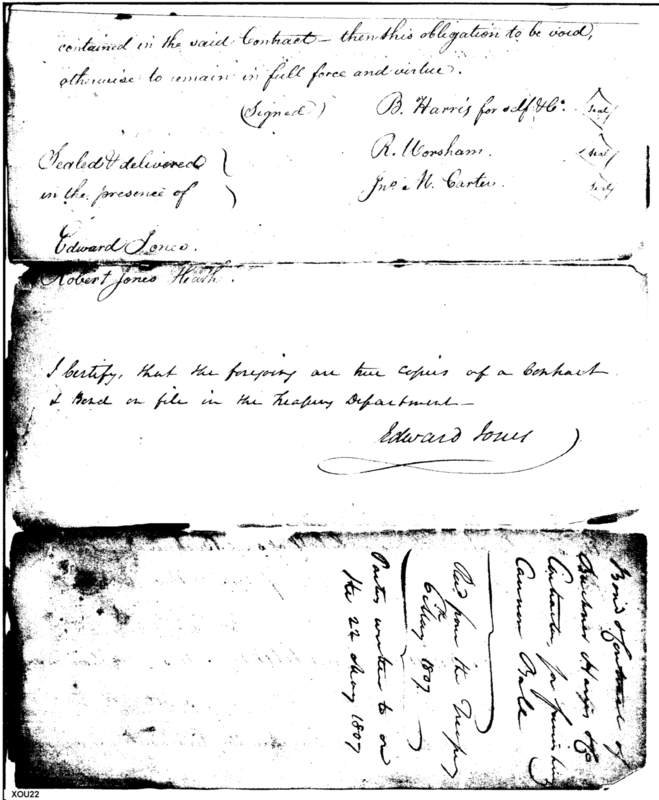 contained in the said Contract – then this obligation to be void,
otherwise to remain in full force and virtue.
(Signed) B. Harris for self & Co. Seal
Sealed & delivered R. Worsham. Seal
in the presence of Jno. N. Carter. Seal
Edward Jones.
Robert Jones Heath.
I Certify, that the foregoing are true copies of a Contract
& Bond on file in the Treasury Department –
Edward Jones
Bond & Contract of
Harris & Co
Contractors for furnishing
Cannon Ball
Recd. from the Treasury
6th May 1807
Parties written to on
the 22 May 1807
XOU22